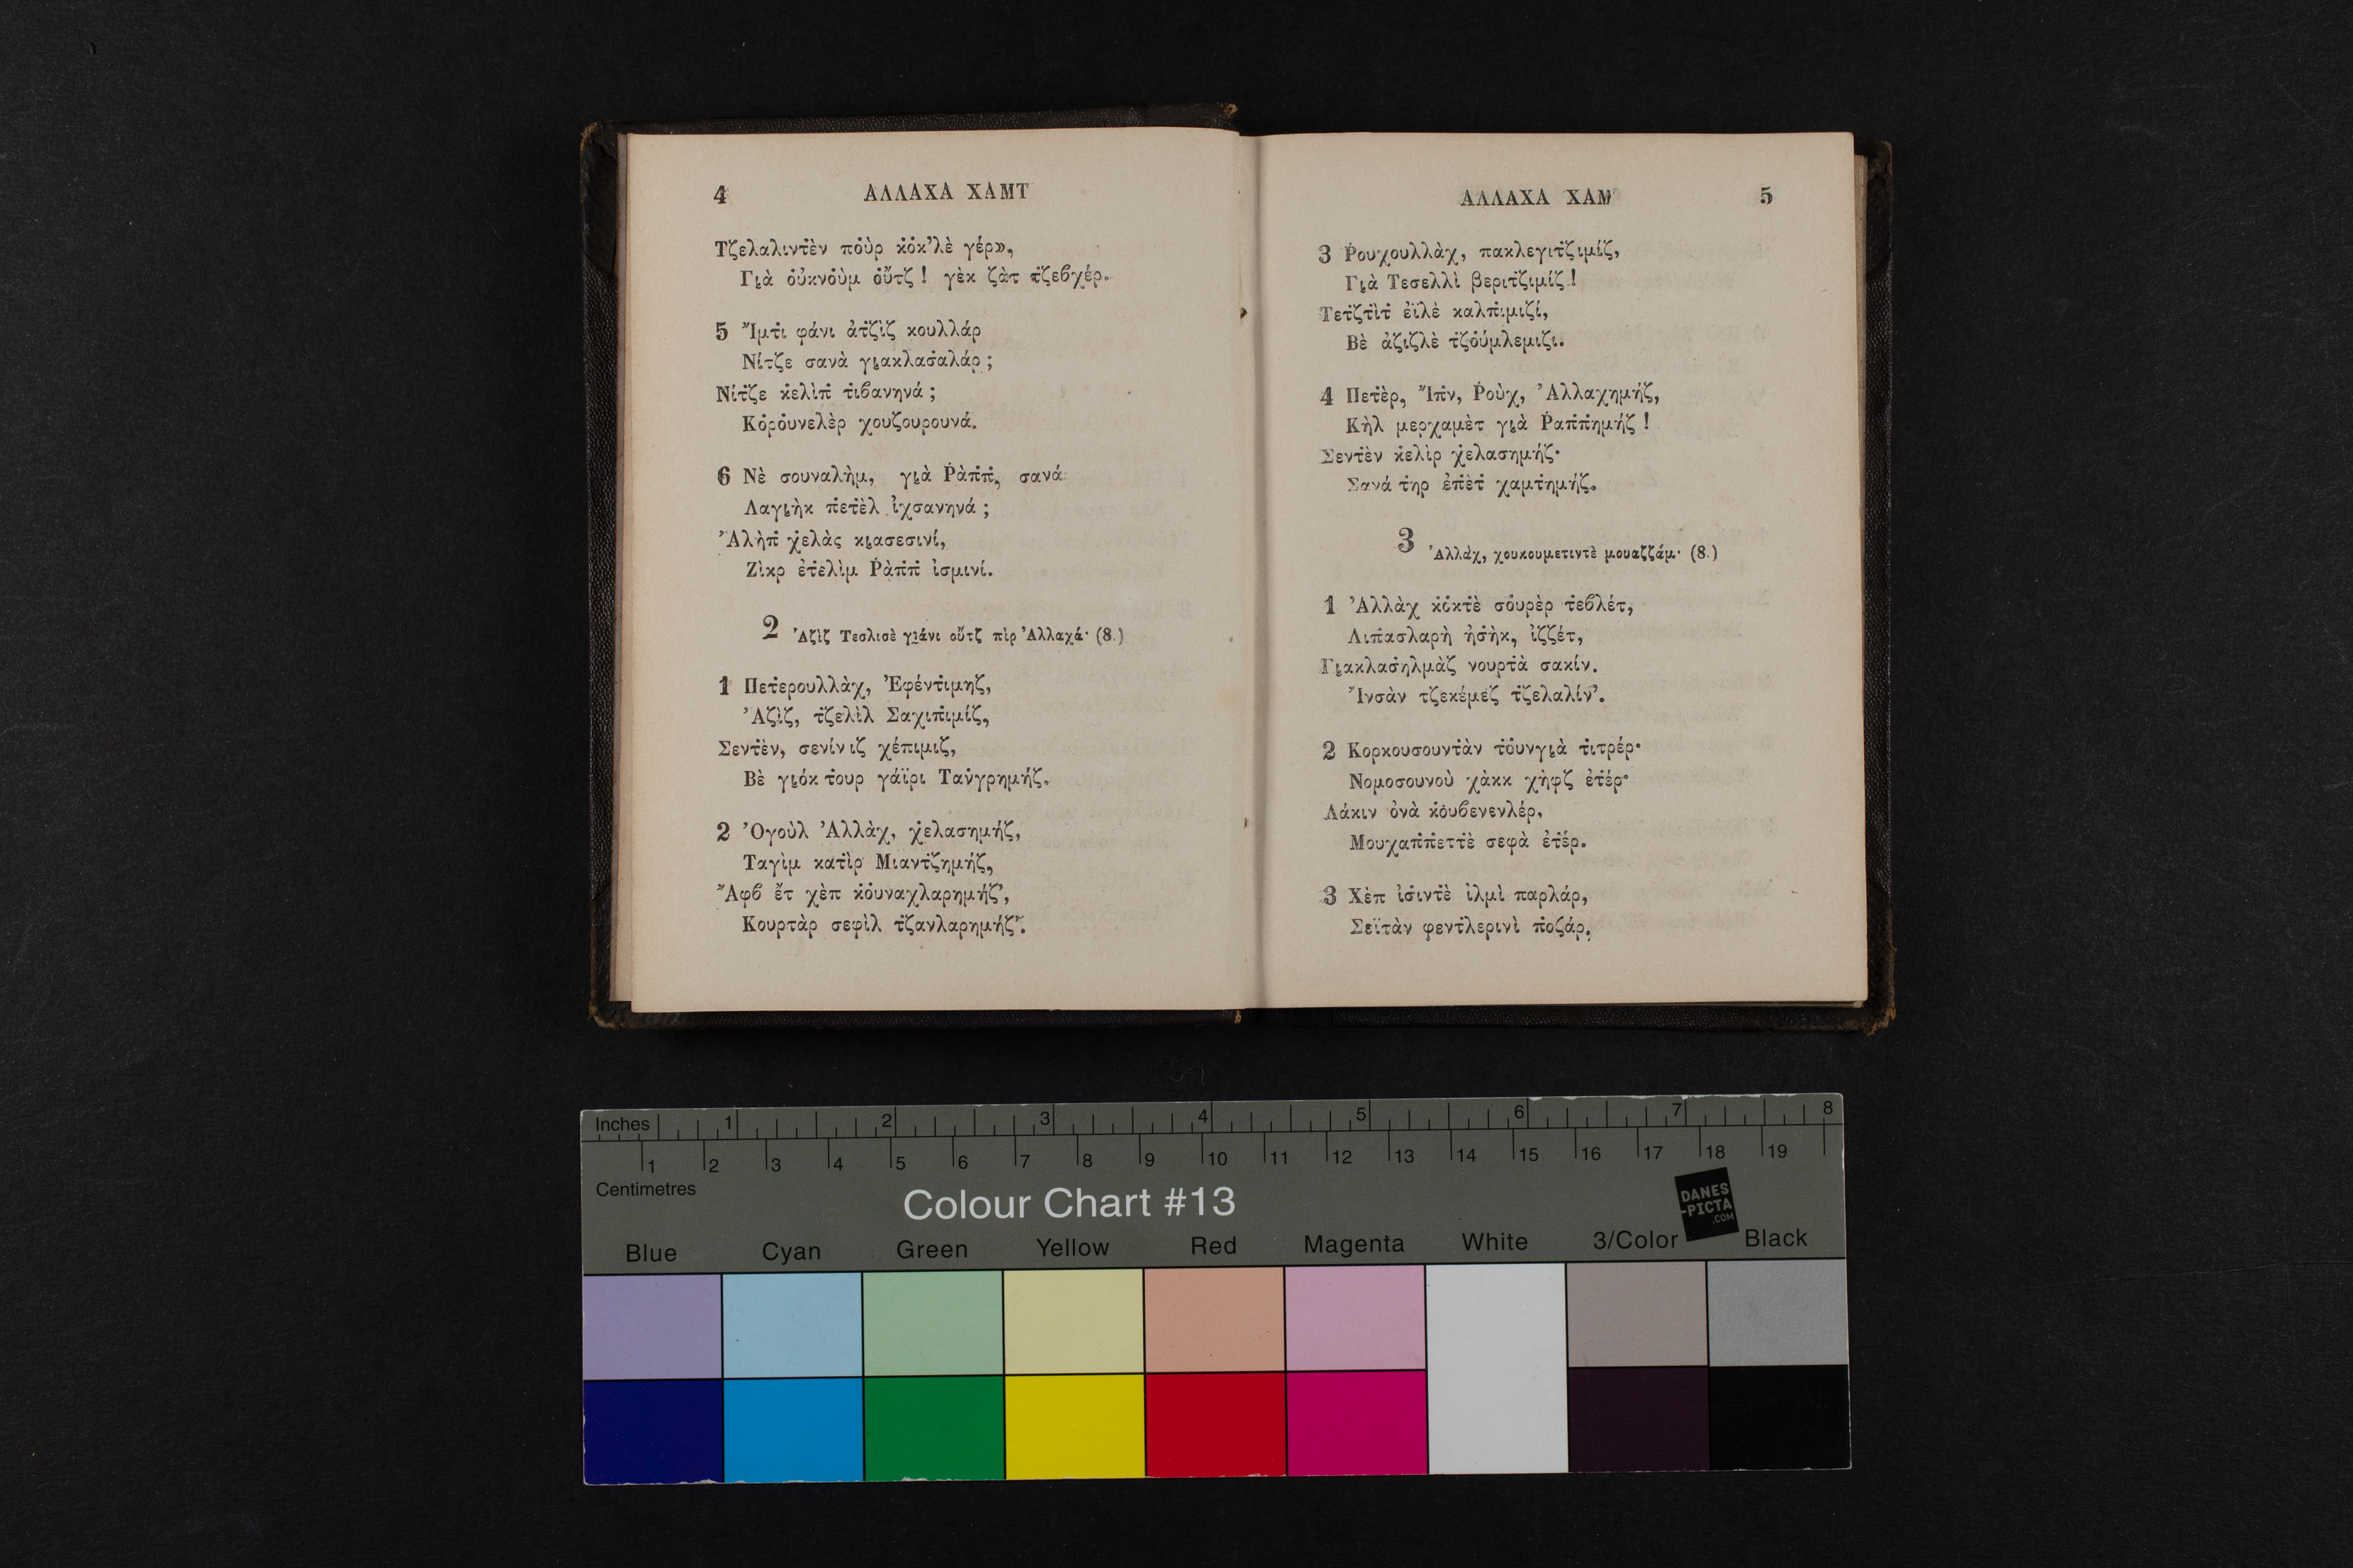 4 ΑΛΛΑΧΑ ΧΑΜΤ
Τζελαλιντ̇ὲν πο̇ὺρ κ̇ο̇κ’λὲ γέρ»,
Γι̯ὰ ο̇ὐκνο̇ὺμ ο̇ὔτζ ! γὲκ ζὰτ τ̇ζεϐχέρ.
5 Ἴμτ̇ι φάνι ἀτ̇ζὶζ κουλλάρ
Νίτζε σανὰ γι̯ακλασ̇αλάρ ;
Νίτ̇ζε κ̇ελὶπ̇ τ̇ιϐανηνά ;
Κο̇ρο̇υνελὲρ χουζουρουνά.
6 Νὲ σουναλὴμ, γι̯ὰ Ῥὰπ̇π̇, σανά
Λαγι̯ὴκ π̇ετ̇ὲλ ἰχσανηνά ;
Ἀλὴπ̇ χ̇ελὰς κι̯ασεσινί,
Ζὶκρ ἐτ̇ελὶμ Ῥὰπ̇π̇ ἰσμινί.
2 Ἀζὶζ Τεσλισὲ γι̯άνι οὔτζ πὶρ Ἀλλαχά· (8.)
1 Πετ̇ερουλλὰχ, Ἐφέντ̇ιμηζ,
Ἀζὶζ, τ̇ζελὶλ Σαχιπ̇ιμίζ,
Σεντ̇ὲν, σενίνιζ χέπιμιζ,
Βὲ γι̯όκ τ̇ουρ γάϊρι Ταν̇γρημήζ.
2 Ὀγοὺλ Ἀλλὰχ, χ̇ελασημήζ,
Ταγὶμ κατ̇ὶρ Μιαντ̇ζημήζ,
Ἀφϐ ἔτ χὲπ κ̇ο̇υναχλαρημήζ’,
Κουρτὰρ σεφὶλ τ̇ζανλαρημήζ’.
ΑΛΛΑΧΑ ΧΑΜ 5
3 Ῥουχουλλὰχ, πακλεγιτ̇ζιμίζ,
Γι̯ὰ Τεσελλὶ βεριτ̇ζιμίζ !
Τετ̇ζτ̇ὶτ̇ ἐϊλὲ καλπ̇ιμιζί,
Βὲ ἀζιζλὲ τ̇ζο̇ύμλεμιζι.
4 Πετ̇ὲρ, Ἴπ̇ν, Ῥοὺχ, Ἀλλαχημήζ,
Κὴλ μερχαμὲτ γι̯ὰ Ῥαπ̇π̇ημήζ !
Σεντ̇ὲν κ̇ελὶρ χ̇ελασημήζ·
Σανά τ̇ηρ ἐπ̇ὲτ̇ χαμτ̇ημήζ.
3 Ἀλλὰχ, χουκουμετιντὲ μουαζζάμ· (8.)
1 Ἀλλὰχ κ̇ο̇κτ̇ὲ σο̇υρὲρ τ̇εϐλέτ,
Λιπ̇ασλαρὴ ἠσ̇ὴκ, ἰζζέτ,
Γι̯ακλασ̇ηλμὰζ νουρτ̇ὰ σακίν.
Ἰνσὰν τζεκέμεζ τ̇ζελαλίν’.
2 Κορκουσουντ̇ὰν το̇υνγι̯ὰ τ̇ιτρέρ·
Νομοσουνοὺ χὰκκ χὴφζ ἐτ̇έρ·
Λάκιν ὀνὰ κ̇ο̇υϐενενλέρ,
Μουχαπ̇π̇εττὲ σεφὰ ἐτ̇έρ.
3 Χὲπ ἰσ̇ιντ̇ὲ ἰλμὶ παρλάρ,
Σεϊτὰν φεντ̇λερινὶ π̇οζάρ,
Inches 1 2 3 4 5 6 7 8
1 2 3 4 5 6 7 8 9 10 11 12 13 14 15 16 17 18 19
Centimetres
Colour Chart #13
DANES
-PICTA
.COM
Blue Cyan Green Yellow Red Magenta White 3/Color Black